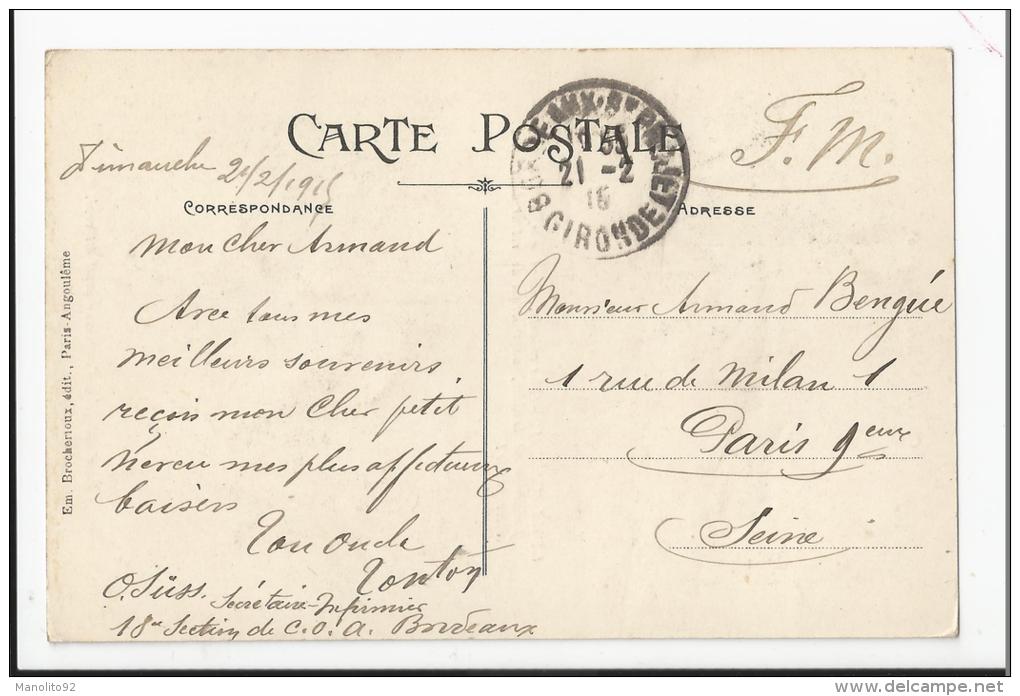 CARTE POSTALE
F. M.
Dimanche 21/2/1915
CORRESPONDANCE
ADRESSE
21 -2
15
GIRONDE
Mon Cher Armand
Avec tous mes
meilleurs souvenirs
reçois mon Cher petit
neveu mes plus affectueux
baisers
Ton Oncle
Tonton
O. Süss.
Secrétaire-Infirmier
18e Section de C.O.A. Bordeaux
Monsieur Armand Bengué
1 rue de Milan 1
Paris 9eme
Seine
Em. Brocherioux, édit., Paris-Angoulême
Manolito92
www.delcampe.net